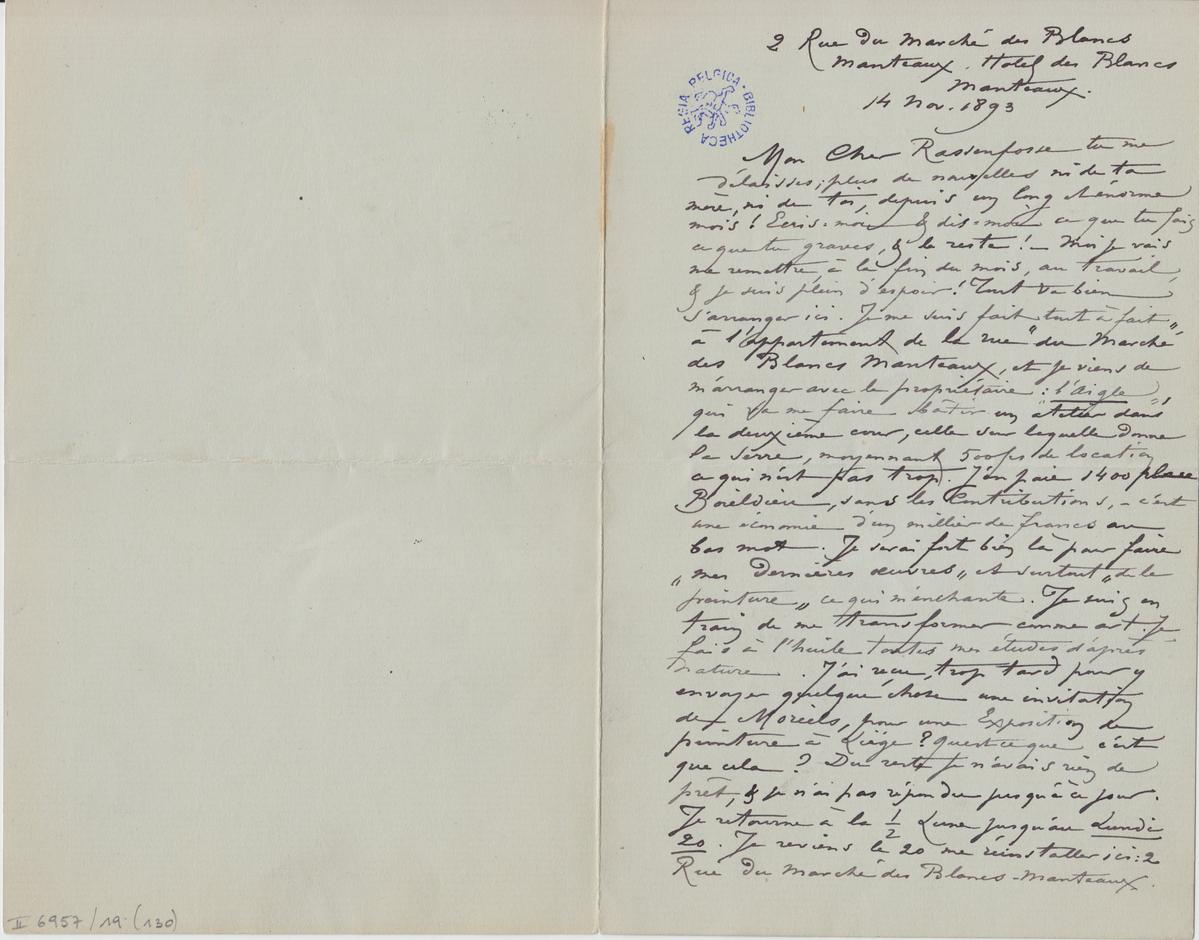 2 Rue du Marché des Blancs
Manteaux. Hotel des Blancs
Manteaux.
14 Nov. 1893
REGIA BELGICA · BIBLIOTHECA
Mon Cher Rassenfosse tu me
délaisses; plus de nouvelles ni de ta
mère, ni de toi, depuis un long et énorme
mois! Ecris-moi & dis-moi ce que tu fais
ce que tu graves, & le reste! – Moi je vais
me remettre à la fin du mois, au travail,
& je suis plein d'espoir! Tout va bien
s'arranger ici. Je me suis fait tout à fait „
à l'appartement de la rue" du Marché
des Blancs Manteaux, et je viens de
m'arranger avec le propriétaire : l'Aigle
qui va me faire bâtir un atelier dans
la deuxième cour, celle sur laquelle donne
la serre, moyennant 500 frs de location
ce qui n'est pas trop. J'en paie 1400 place
Boieldieu, sans les Contributions, – c'est
une économie d'un millier de francs au
bas mot. Je serai fort bien là pour faire
„mes Dernières œuvres„ et surtout „de la
peinture„ ce qui m'enchante. Je suis en
train de me transformer comme art. Je
fais à l'huile toutes mes études d'après
nature. J'ai reçu, trop tard pour y
envoyer quelque chose une invitation
de Moreels, pour une Exposition de
peinture à Liège? Qu'est ce que c'est
que cela? Du reste je n'avais rien de
prêt, & je n'ai pas répondu jusqu'à ce jour.
Je retourne à la 1/2 Lune jusqu'au Lundi
20. Je reviens le 20 me réinstaller ici: 2
Rue du Marché des Blancs-Manteaux.
II 6957/19 (130)